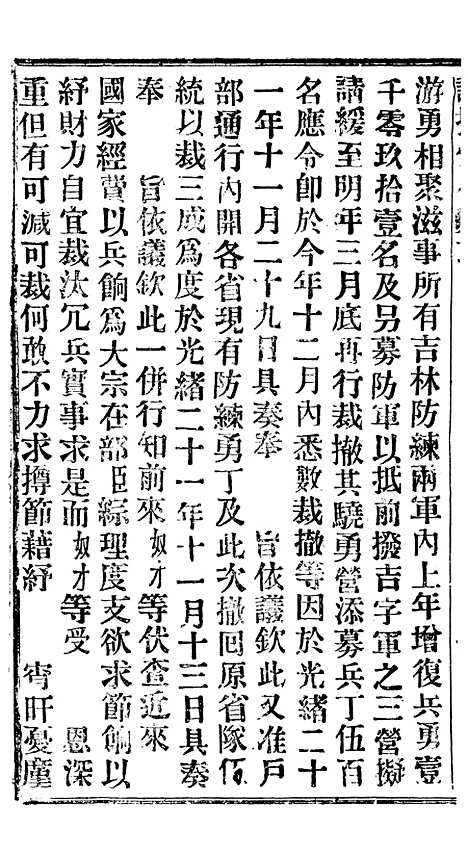 游勇相聚滋事所有吉林防練兩軍內上年增復兵勇壹
千零玖拾壹名及另募防軍以抵前撥吉字軍之三營擬
請緩至明年三月底再行裁撤其驍勇營添募兵丁伍百
名應令卽於今年十二月內悉數裁撤等因於光緒二十
一年十一月二十九日具奏奉　旨依議欽此又准戶
部通行內開各省現有防練勇丁及此次撤回原省隊伍
統以裁三成爲度於光緒二十一年十一月十三日具奏
奉　旨依議欽此一併行知前來奴才等伏查近來
國家經費以兵餉爲大宗在部臣綜理度支欲求節餉以
紓財力自宜裁汰冗兵實事求是而奴才等受　恩深
重但有可減可裁何敢不力求撙節藉紓　宵旰憂廑